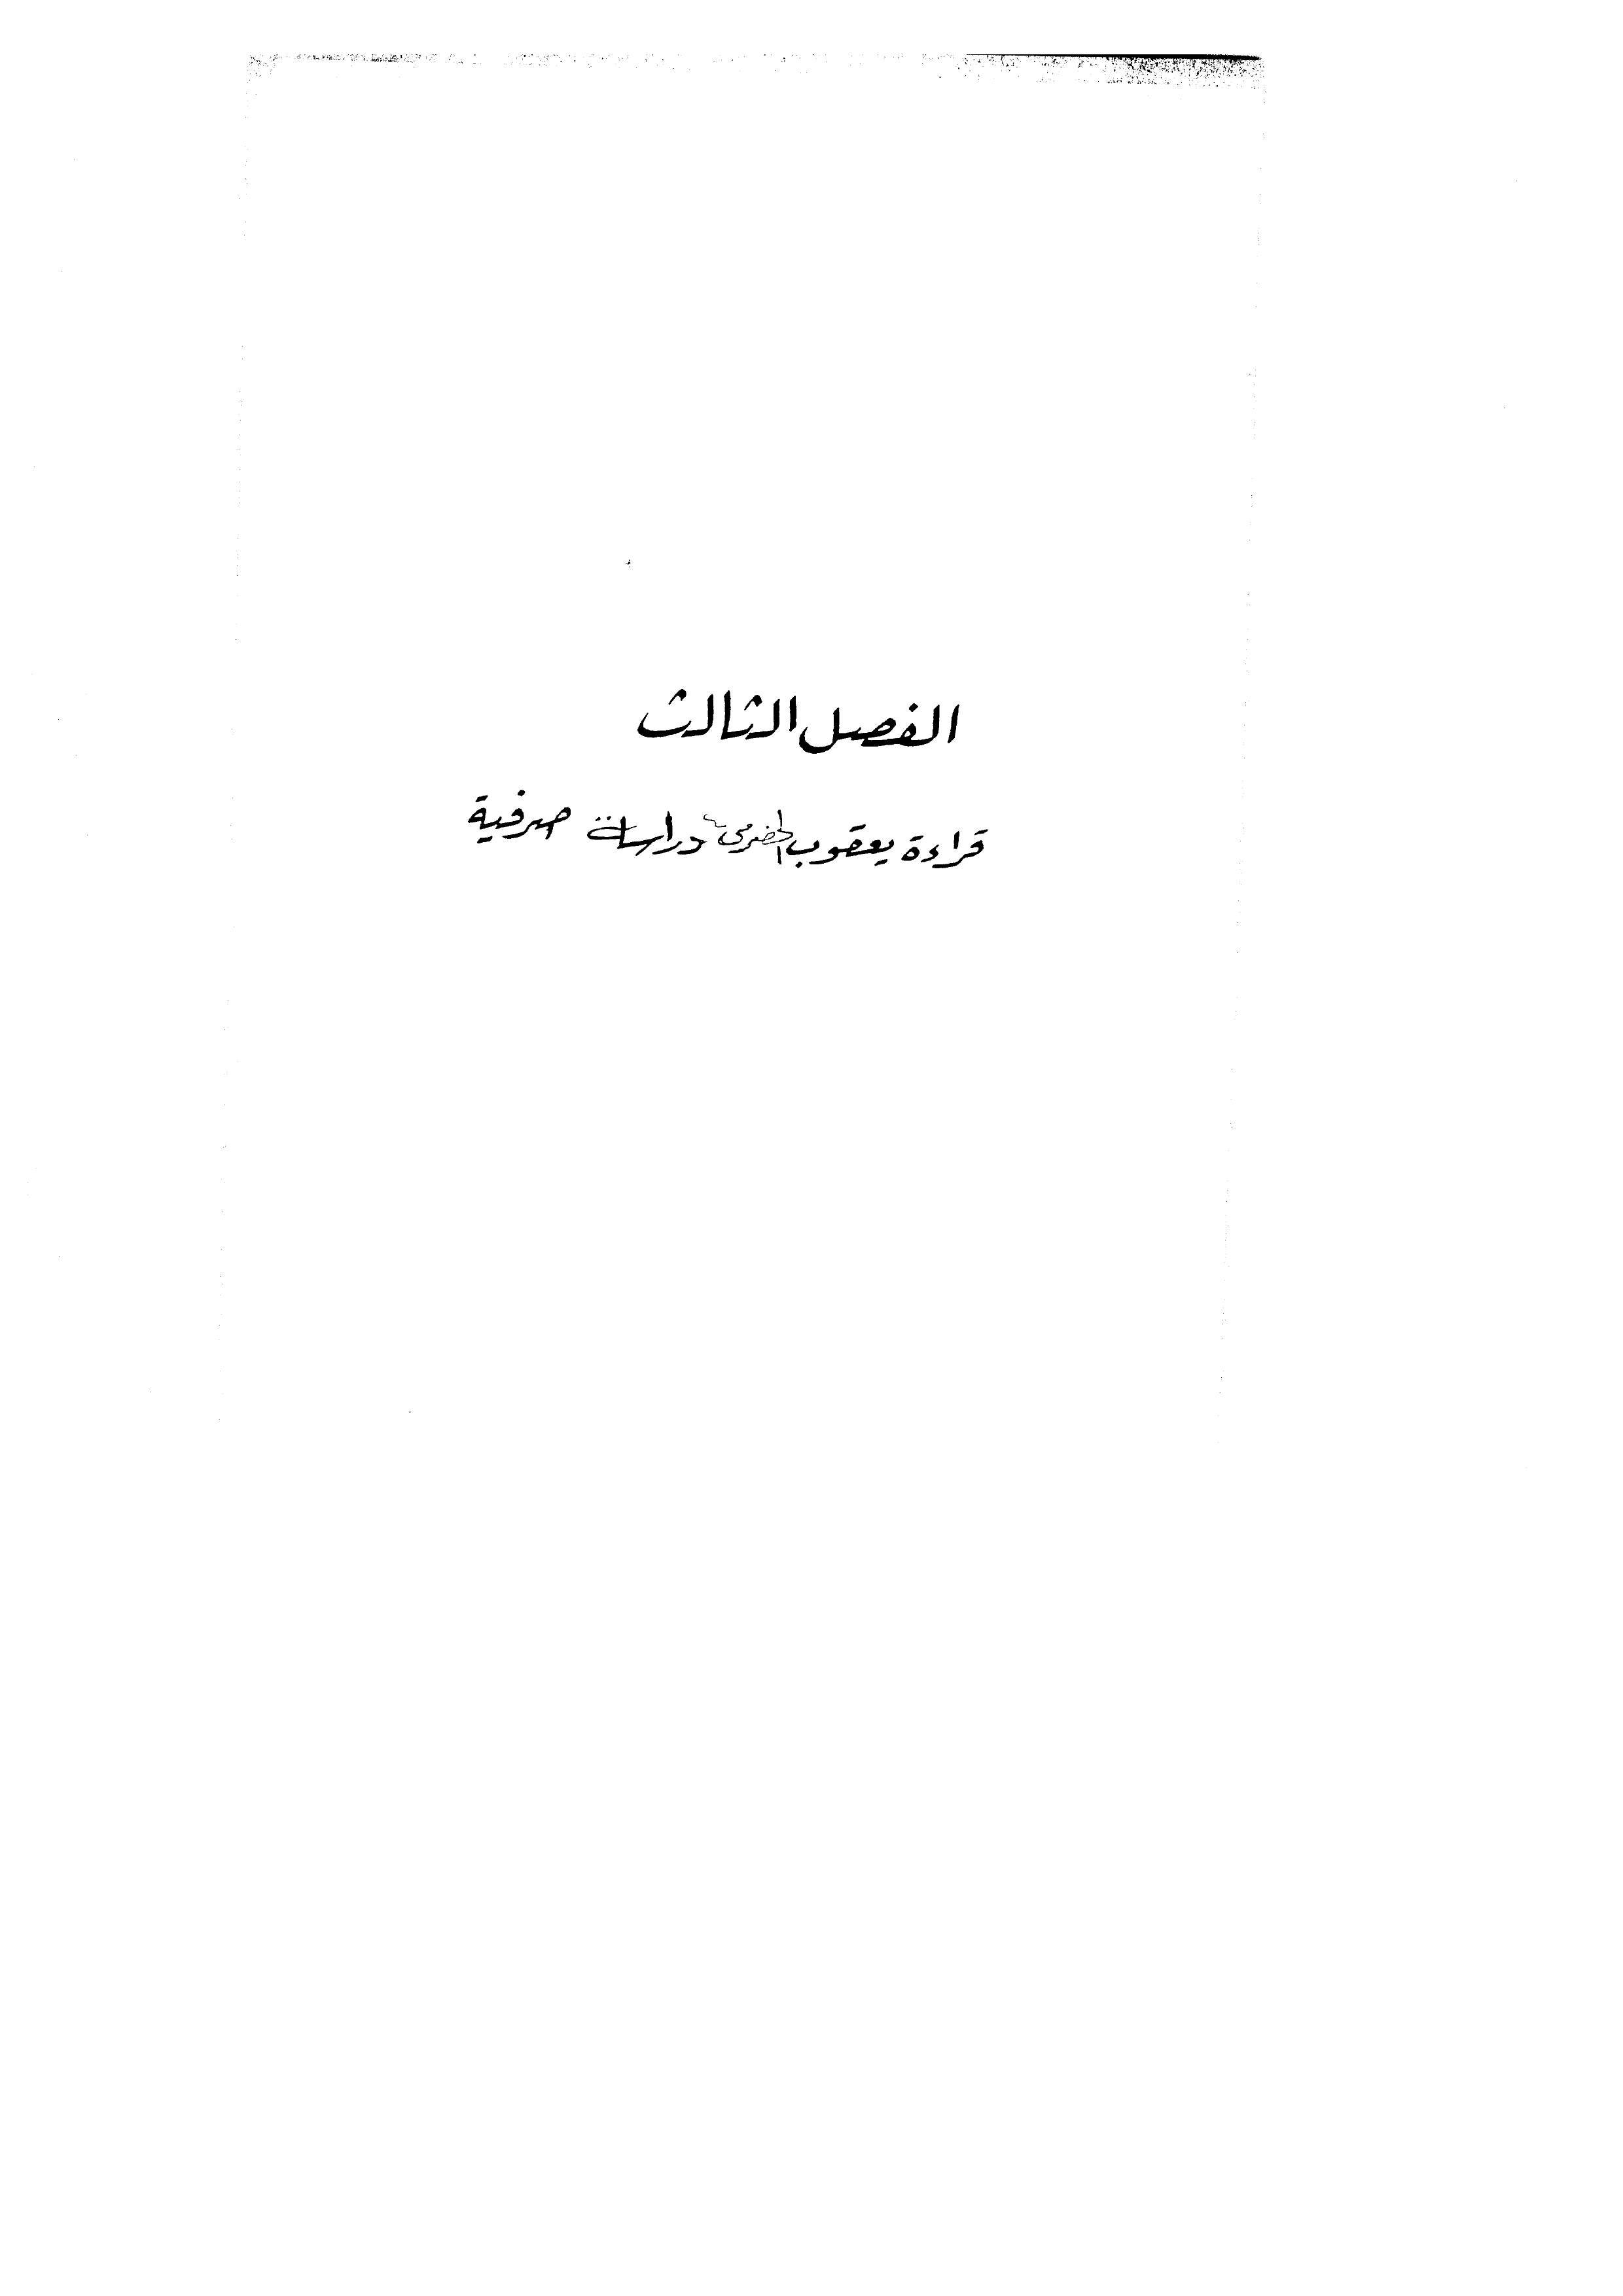 الفصل الثالث
قراءة يعقوب الحضرمي دراسة صرفية